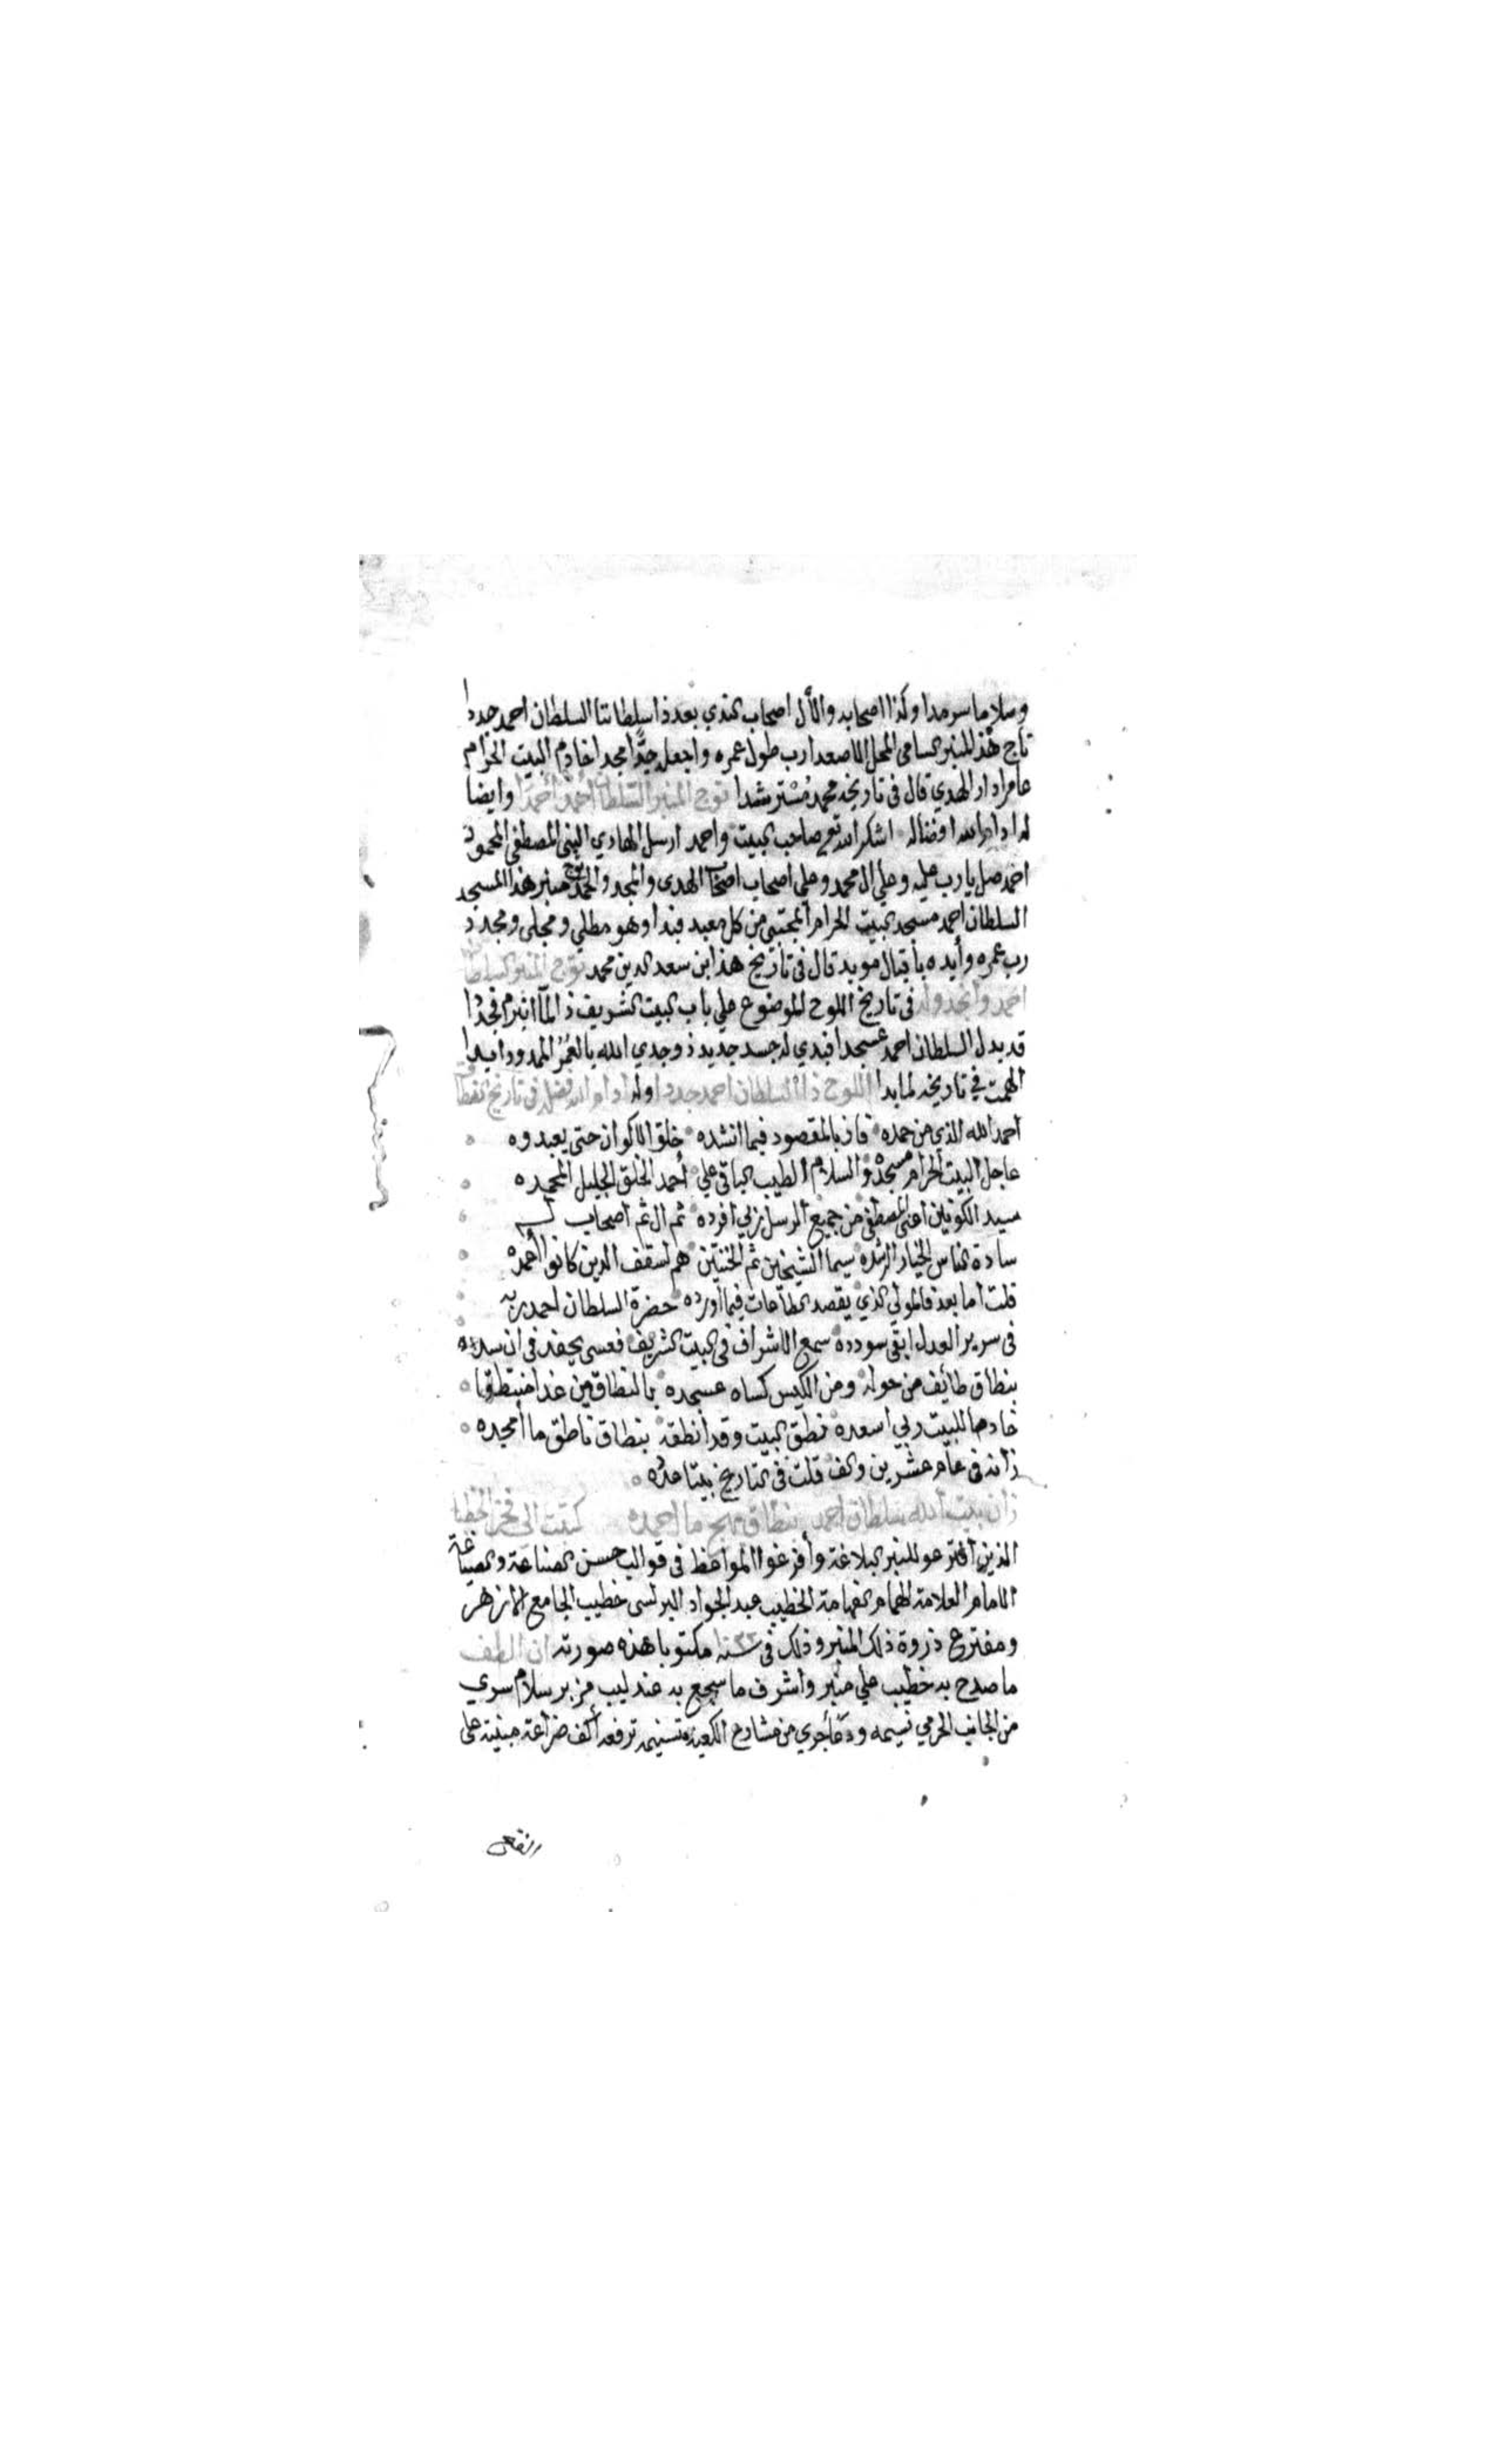 وسلاما سرمدا وكذا اصحابه والآل اصحاب الندي بعد ذا سلطاننا السلطان احمد جددا
تاج هذا المنبر السامي المحل الاصعدا رب طول عمره واجعله جدًّا امجدا خادم البيت الحرام
عامرا دار الهدي قال في تاريخه محمد مُسْترشدا توج المنبر السلطان أحمدُ أحمدَا وايضا
له ادام الله افضاله اشكر الله مع صاحب البيت واحمد ارسل الهادي النبي المصطفي المحمود
احمد صل يا رب عليه وعلي ال محمد وعلي اصحاب اصحاب الهدى والمجد والحمد توج منبر هذا المسجد
السلطان احمد مسجد البيت الحرام المجتبى من كل معبد فبدا وهو مطلي ومجلى ومجدد
رب عمره وأيده باقبال مويد قال في تاريخ هذا ابن سعد الدين محمد توج المنبر السلطان
احمد وامجد وله في تاريخ اللوح الموضوع علي باب البيت الشريف ذ
قد بدل السلطان احمد عسجدا فبدي له جسد جديد ذو جدي الله بالعُمُرُ الممدود
الهمت في تاريخه لما بدا اللوح ذا السلطان احمد جددا وله ادام الله فضله في تاريخ النطاق
احمد الله الذي من حمده فاز بالمقصود فيما انشده خلق الاكوان حتى يعبدوه
عاجل البيت الحرام مسجده والسلام الطيب الباقي علي أحمد الخلق الجليل المحمده
سيد الكونين اعني المصطفى من جميع الرسل ربي افرده ثم ال ثم اصحاب لهم
سادة الناس الخيار الرشده سيما الشيخين ثم الختنين هم لسقف الدين كانوا أعمده
قلت اما بعد فالمولي الذي يقصد الطاعات فيما أورده حضرة السلطان احمد ربه
في سرير العدل ابقى سودده سمع الاشراف في البيت الشريف فعسى
بنطاق طائف من حوله ومن الكيس كساه عسجده بالنطاق من غدا منتطقا
خادما للبيت ربي اسعده نطق البيت وقد انطقه بنطاق ناطق ما أمجده
زانه في عام عشرين والف قلت في التاريخ بيتا
زان بيت الله سلطان احمد بنطاق ما احمده كتبت الى فخر الخطبا
الذين افترعوا للمنبر البلاغة وأفرغوا المواعظ في قوالب حسن الصناعة والصياغة
الامام العلامة الهمام الفهامة الخطيب عبد الجواد البرلسى خطيب الجامع الازهر
ومفترع ذروة ذلك المنبر وذلك في سنة مكتوبا هذه صورته ان الطف
ما صدح به خطيب علي منبر واشرف ما سجع به عندليب مزبر سلام سري
من الجانب الحرمي نسيمه ودعا جري من مشارع الكعبة تسنيمه ترفعه أكف ضراعة مبنية على